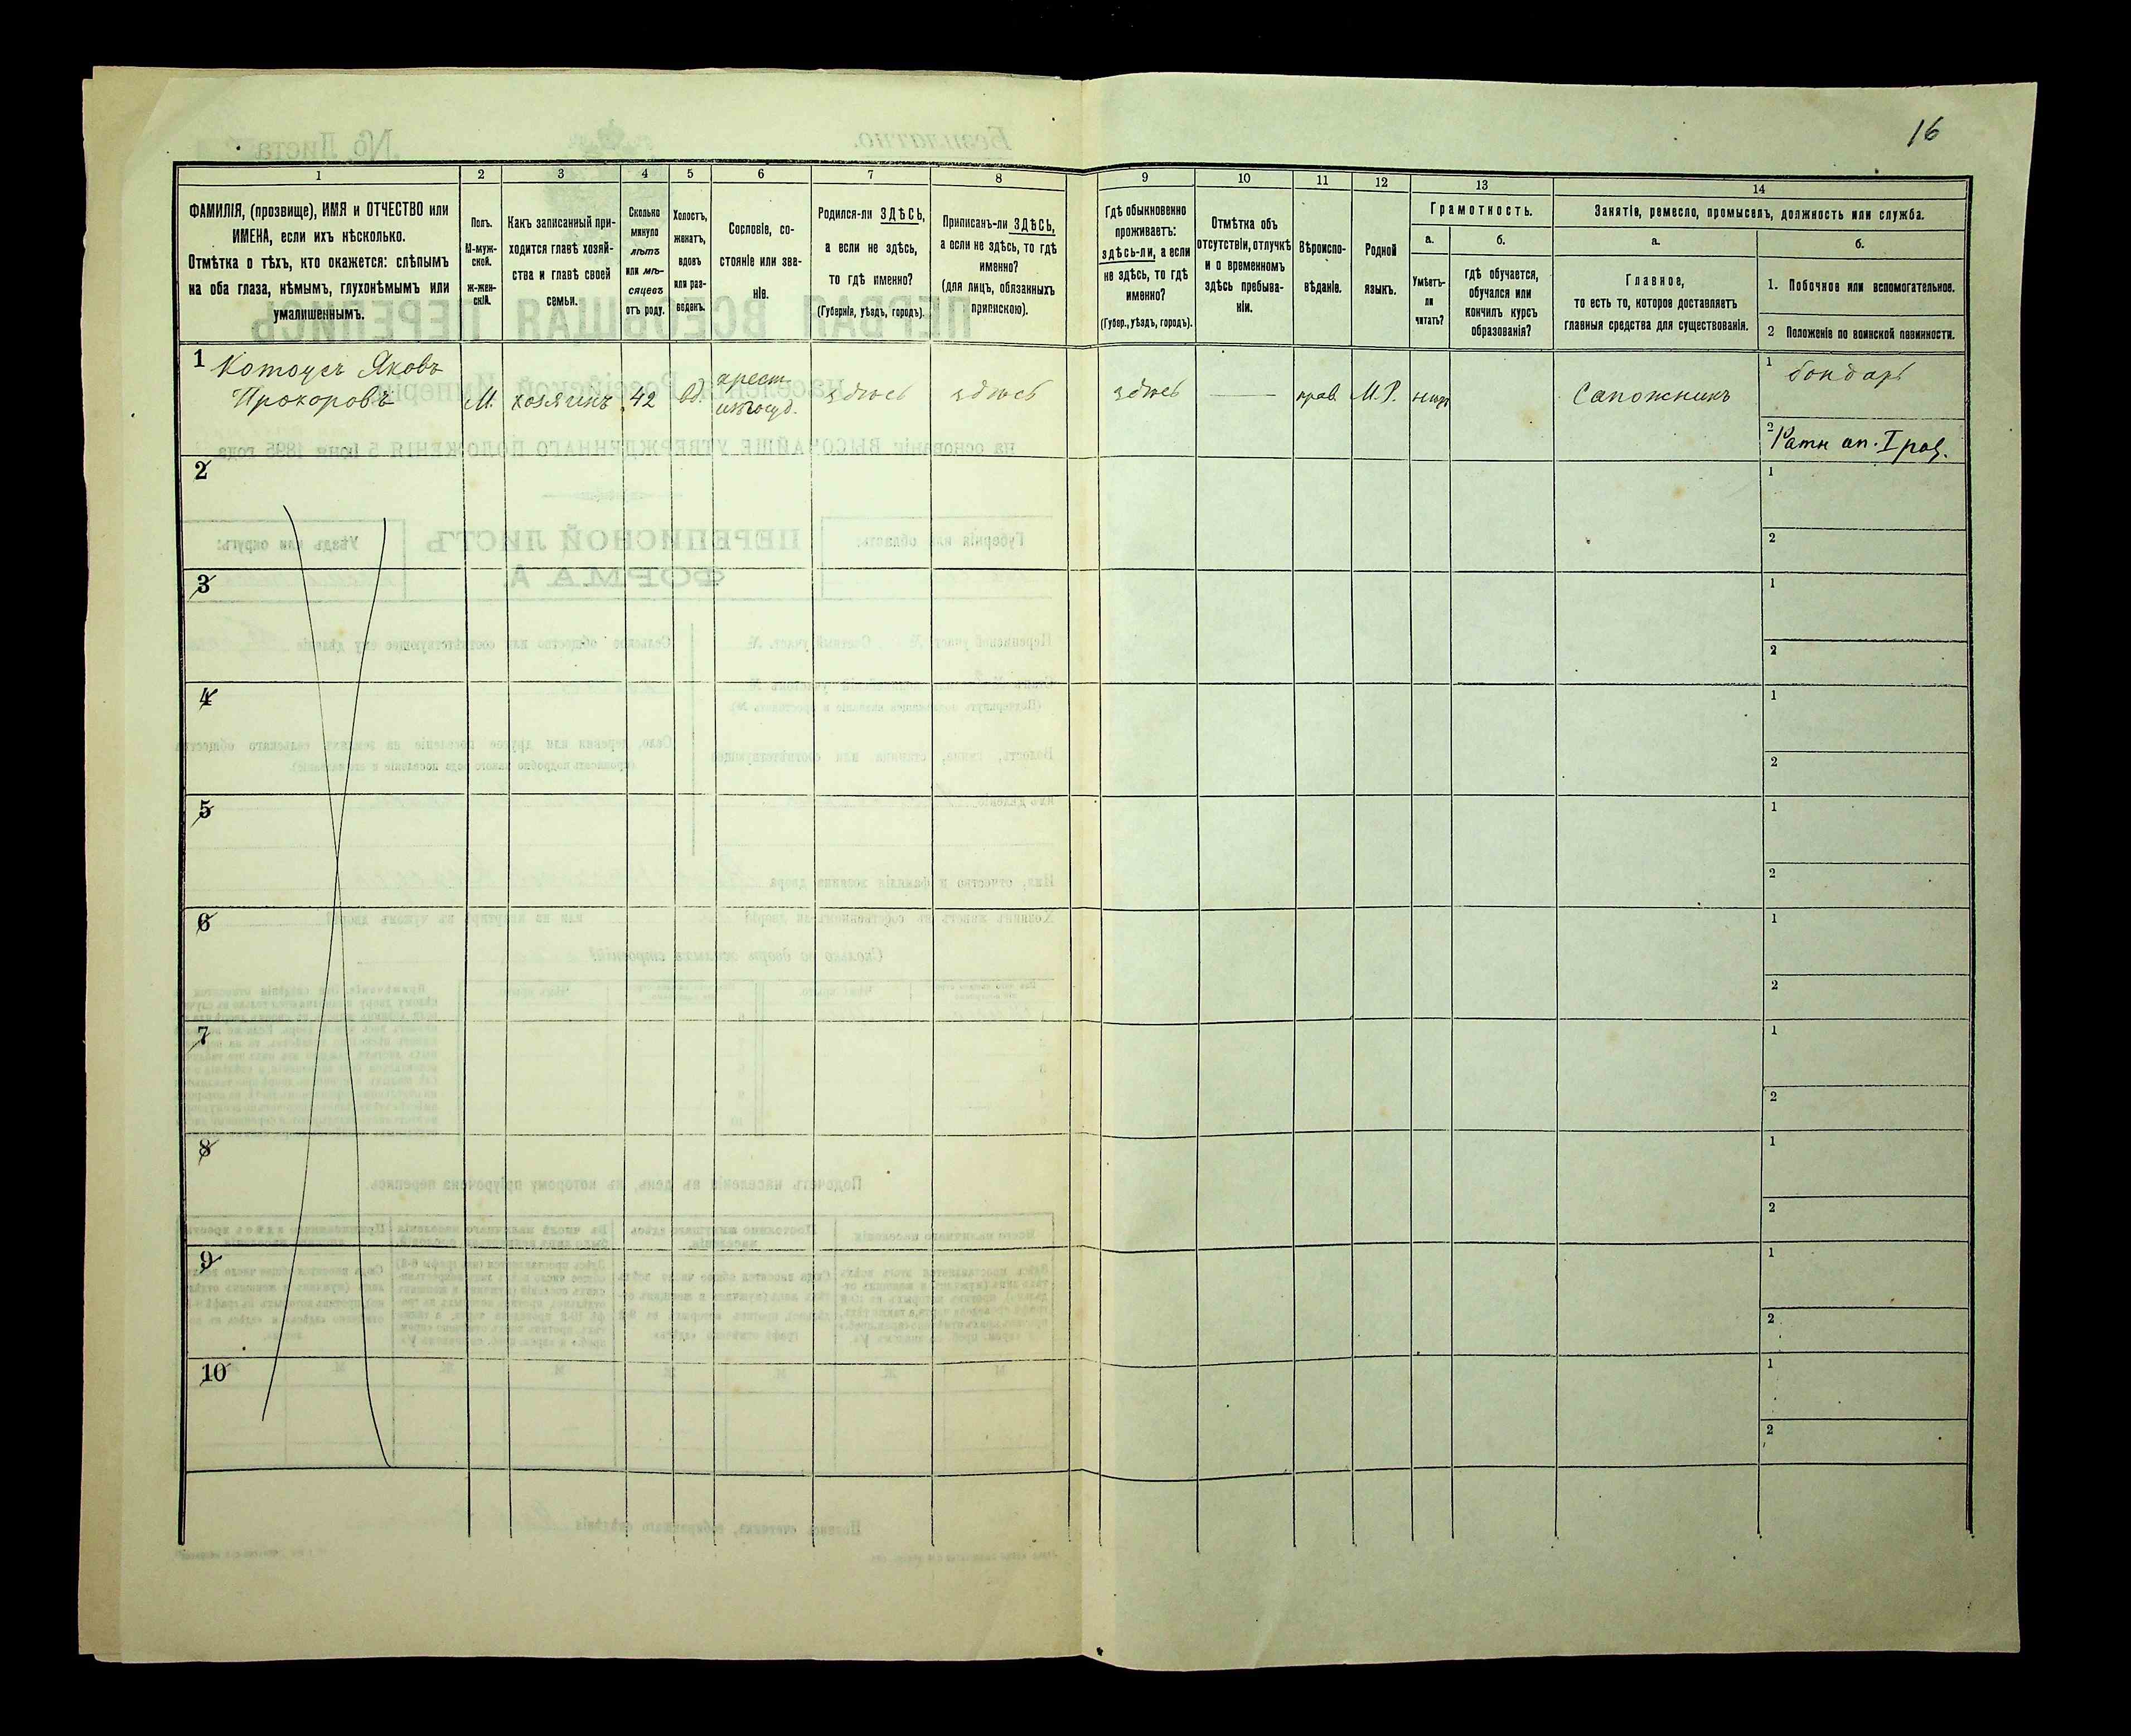 16
1
2
3
4
5
6
7
8
9
10
11
12
13
14
ФАМИЛІЯ, (прозвище), ИМЯ и ОТЧЕСТВО или
ИМЕНА, если ихъ нѣсколько.
Отмѣтка о тѣхъ, кто окажется: слѣпымъ
на оба глаза, нѣмымъ, глухонѣмымъ или
умалишеннымъ.
Полъ.
М-муж-
ской.
ж-жен-
скій.
Какъ записанный при-
ходится главѣ хозяй-
ства и главѣ своей
семьи.
Сколько
минуло
лѣтъ
или мѣ-
сяцевъ
отъ роду.
Холостъ,
женатъ,
вдовъ
или раз-
веденъ.
Сословіе, со-
стояніе или зва-
ніе.
Родился-ли ЗДѢСЬ,
а если не здѣсь,
то гдѣ именно?
(Губернія, уѣздъ, городъ).
Приписанъ-ли ЗДѢСЬ,
а если не здѣсь, то гдѣ
именно?
(для лицъ, обязанныхъ
припискою).
Гдѣ обыкновенно
проживаетъ:
здѣсь-ли, а если
не здѣсь, то гдѣ
именно?
(Губер., уѣздъ, городъ).
Отмѣтка объ
отсутствіи, отлучкѣ
и о временномъ
здѣсь пребыва-
ніи.
Вѣроиспо-
вѣданіе.
Родной
языкъ.
Грамотность.
а.
б.
Умѣетъ-
ли
читать?
Гдѣ обучается,
обучался или
кончилъ курсъ
образованія?
Занятіе, ремесло, промыселъ, должность или служба.
а.
б.
Главное,
то есть то, которое доставляетъ
главныя средства для существованія.
1. Побочное или вспомогательное.
2 Положеніе по воинской повинности.
1 Котоусъ Яковъ
Прохоровъ
М.
хозяинъ
42
Вд.
крест.
здѣсь
здѣсь
здѣсь
—
прав.
М.Р.
нѣтъ
Сапожникъ
1 бондарь
2 Ратн оп. I раз.
2
1
2
3
1
2
4
1
2
5
1
2
6
1
2
7
1
2
8
1
2
9
1
2
10
1
2